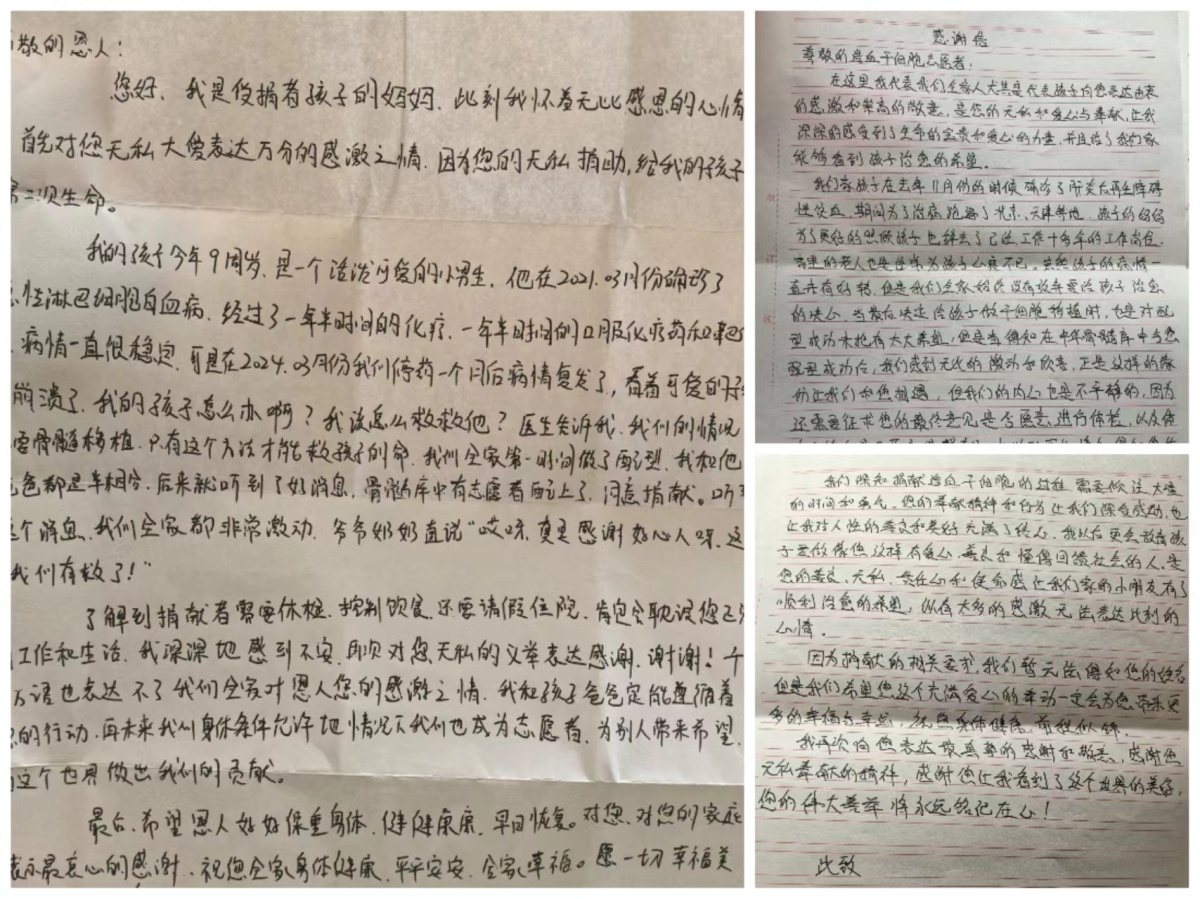 敬的恩人：
您好，我是受捐者孩子的妈妈，此刻我怀着无比感恩的心情
首先对您无私大爱表达万分的感激之情，因为您的无私捐助，给我的孩子
第二次生命。
我的孩子今年9周岁，是一个活泼可爱的小男生，他在2021.03月份确诊了
性淋巴细胞白血病，经过了一年半时间的化疗，一年半时间的口服化疗药和靶
病情一直很稳定，可是在2024.03月份我们停药一个月后病情复发了，看着可爱的
崩溃了，我的孩子怎么办啊？我该怎么救救他？医生告诉我，我们的情况
要骨髓移植，只有这个方法才能救孩子的命，我们全家第一时间做了配型，我和他
爸都是半相合，后来就听到了好消息，骨髓库中有志愿者配上了，同意捐献。听
个消息，我们全家都非常激动，爷爷奶奶直说“哎呀，真是感谢好心人呀，这
我们有救了！”
了解到捐献者需要体检，控制饮食，还要请假住院，肯定会耽误您正
工作和生活，我深深地感到不安，即见对您无私的义举表达感谢，谢谢！千
万语也表达不了我们全家对恩人您的感激之情，我和孩子爸爸定能遵循着
的行动，再未来我们身体条件允许地情况下我们也成为志愿者，为别人带来希望，
这个世界做出我们的贡献。
最后，希望恩人好好保重身体，健健康康，早日恢复。对您、对您的家庭
表示最衷心的感谢，祝您全家身体健康，平平安安，全家幸福。愿一切幸福美
感谢您
尊敬的造血干细胞志愿者：
在这里我代表我们全家人尤其是代表孩子向您表达由衷
的感激和崇高的敬意，是您的无私和爱心与奉献，让我
深深的感受到了生命的宝贵和爱心的力量，并且给了我们家
能够看到孩子治愈的希望。
我们家孩子在去年11月份的时候确诊了肝炎后再生障碍
性贫血，期间为了治病跑遍了北京、天津等地，孩子的妈妈
为了更好的照顾孩子也辞去了已经工作十多年的工作岗位，
家里的老人也是经常为孩子心疼不已。虽然孩子的病情一
直并有好转，但是我们全家始终没有放弃要给孩子治愈
的决心，当最后决定给孩子做干细胞移植时，也是对配
型成功未抱有太大希望，但是当得知在中华骨髓库中与您
配型成功后，我们感到无比的激动和欣喜，正是这样的缘
份让我们和您相遇，但我们的内心也是不平静的，因为
还需要征求您的最终意见是否愿意进行体检，以及
我们深知捐献造血干细胞的过程，需要倾注大量
的时间和勇气，您的奉献精神和行为让我们深受感动，也
让我对人性的善良和美好充满了信心，我以后更会教育孩
子要做像您这样有爱心、善良和懂得回馈社会的人，是
您的善良、无私、责任心和使命感让我们家的小朋友有了
顺利治愈的希望，纵有太多的感激无法表达此刻的
心情。
因为捐献的相关要求，我们暂无法得知您的姓名
但是我们希望您这个充满爱心的举动一定会为您带来更
多的幸福与幸运，祝您身体健康，前程似锦。
我再次向您表达最真挚的感谢和敬意，感谢您
无私奉献的精神，感谢您让我看到了这个世界的美好，
您的伟大善举将永远铭记在心！
此致